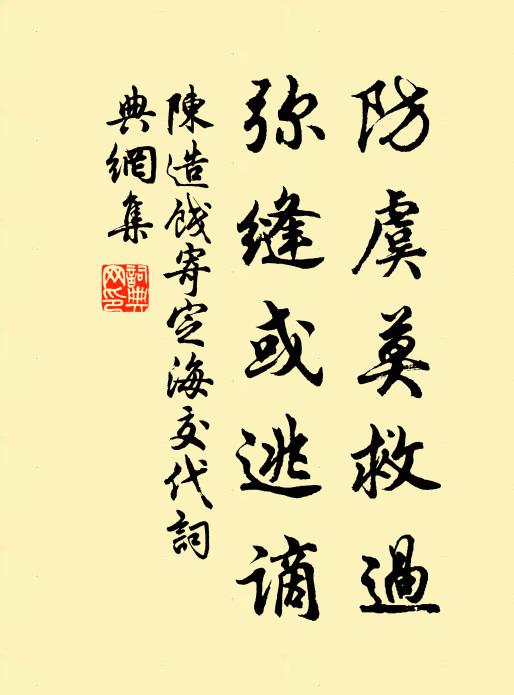 防虞莫救過
弥縫或逃謫
陳造餞寄定海交代詞
典網集
詞典
网印